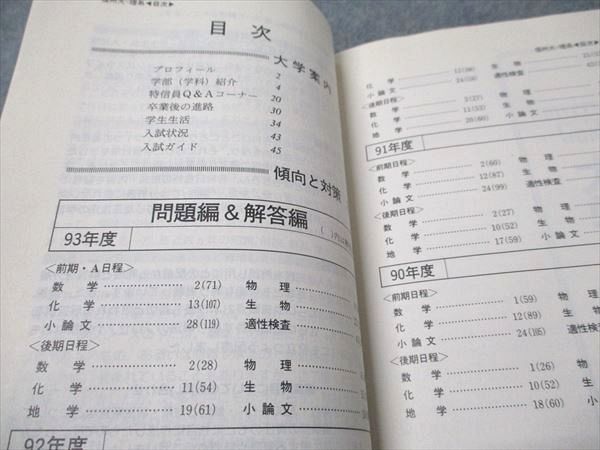 信州大-理系◀目次▶
目次
大学案内
プロフィール 2
学部（学科）紹介 4
特信員Q＆Aコーナー 20
卒業後の進路 30
学生生活 34
入試状況 43
入試ガイド 45
傾向と対策
問題編＆解答編
93年度
＜前期・A日程＞
数学 2(71) 物理
化学 13(107) 生物
小論文 28(119) 適性検査
＜後期日程＞
数学 2(28) 物理
化学 11(54) 生物
地学 19(61) 小論文
92年度
信州大-理系◀目次▶
化学 生物
小論文 適性検査
＜後期日程＞
数学 2(27) 物理
化学 11(53) 生物
地学 20(60) 小論文
91年度
＜前期日程＞
数学 2(66) 物理
化学 12(87) 生物
小論文 24(99) 適性検査
＜後期日程＞
数学 2(27) 物理
化学 10(52) 生物
地学 17(59) 小論文
90年度
＜前期日程＞
数学 1(59) 物理
化学 12(89) 生物
小論文 24(105) 適性検
＜後期日程＞
数学 1(26) 物
化学 10(52) 生
地学 18(60) 小